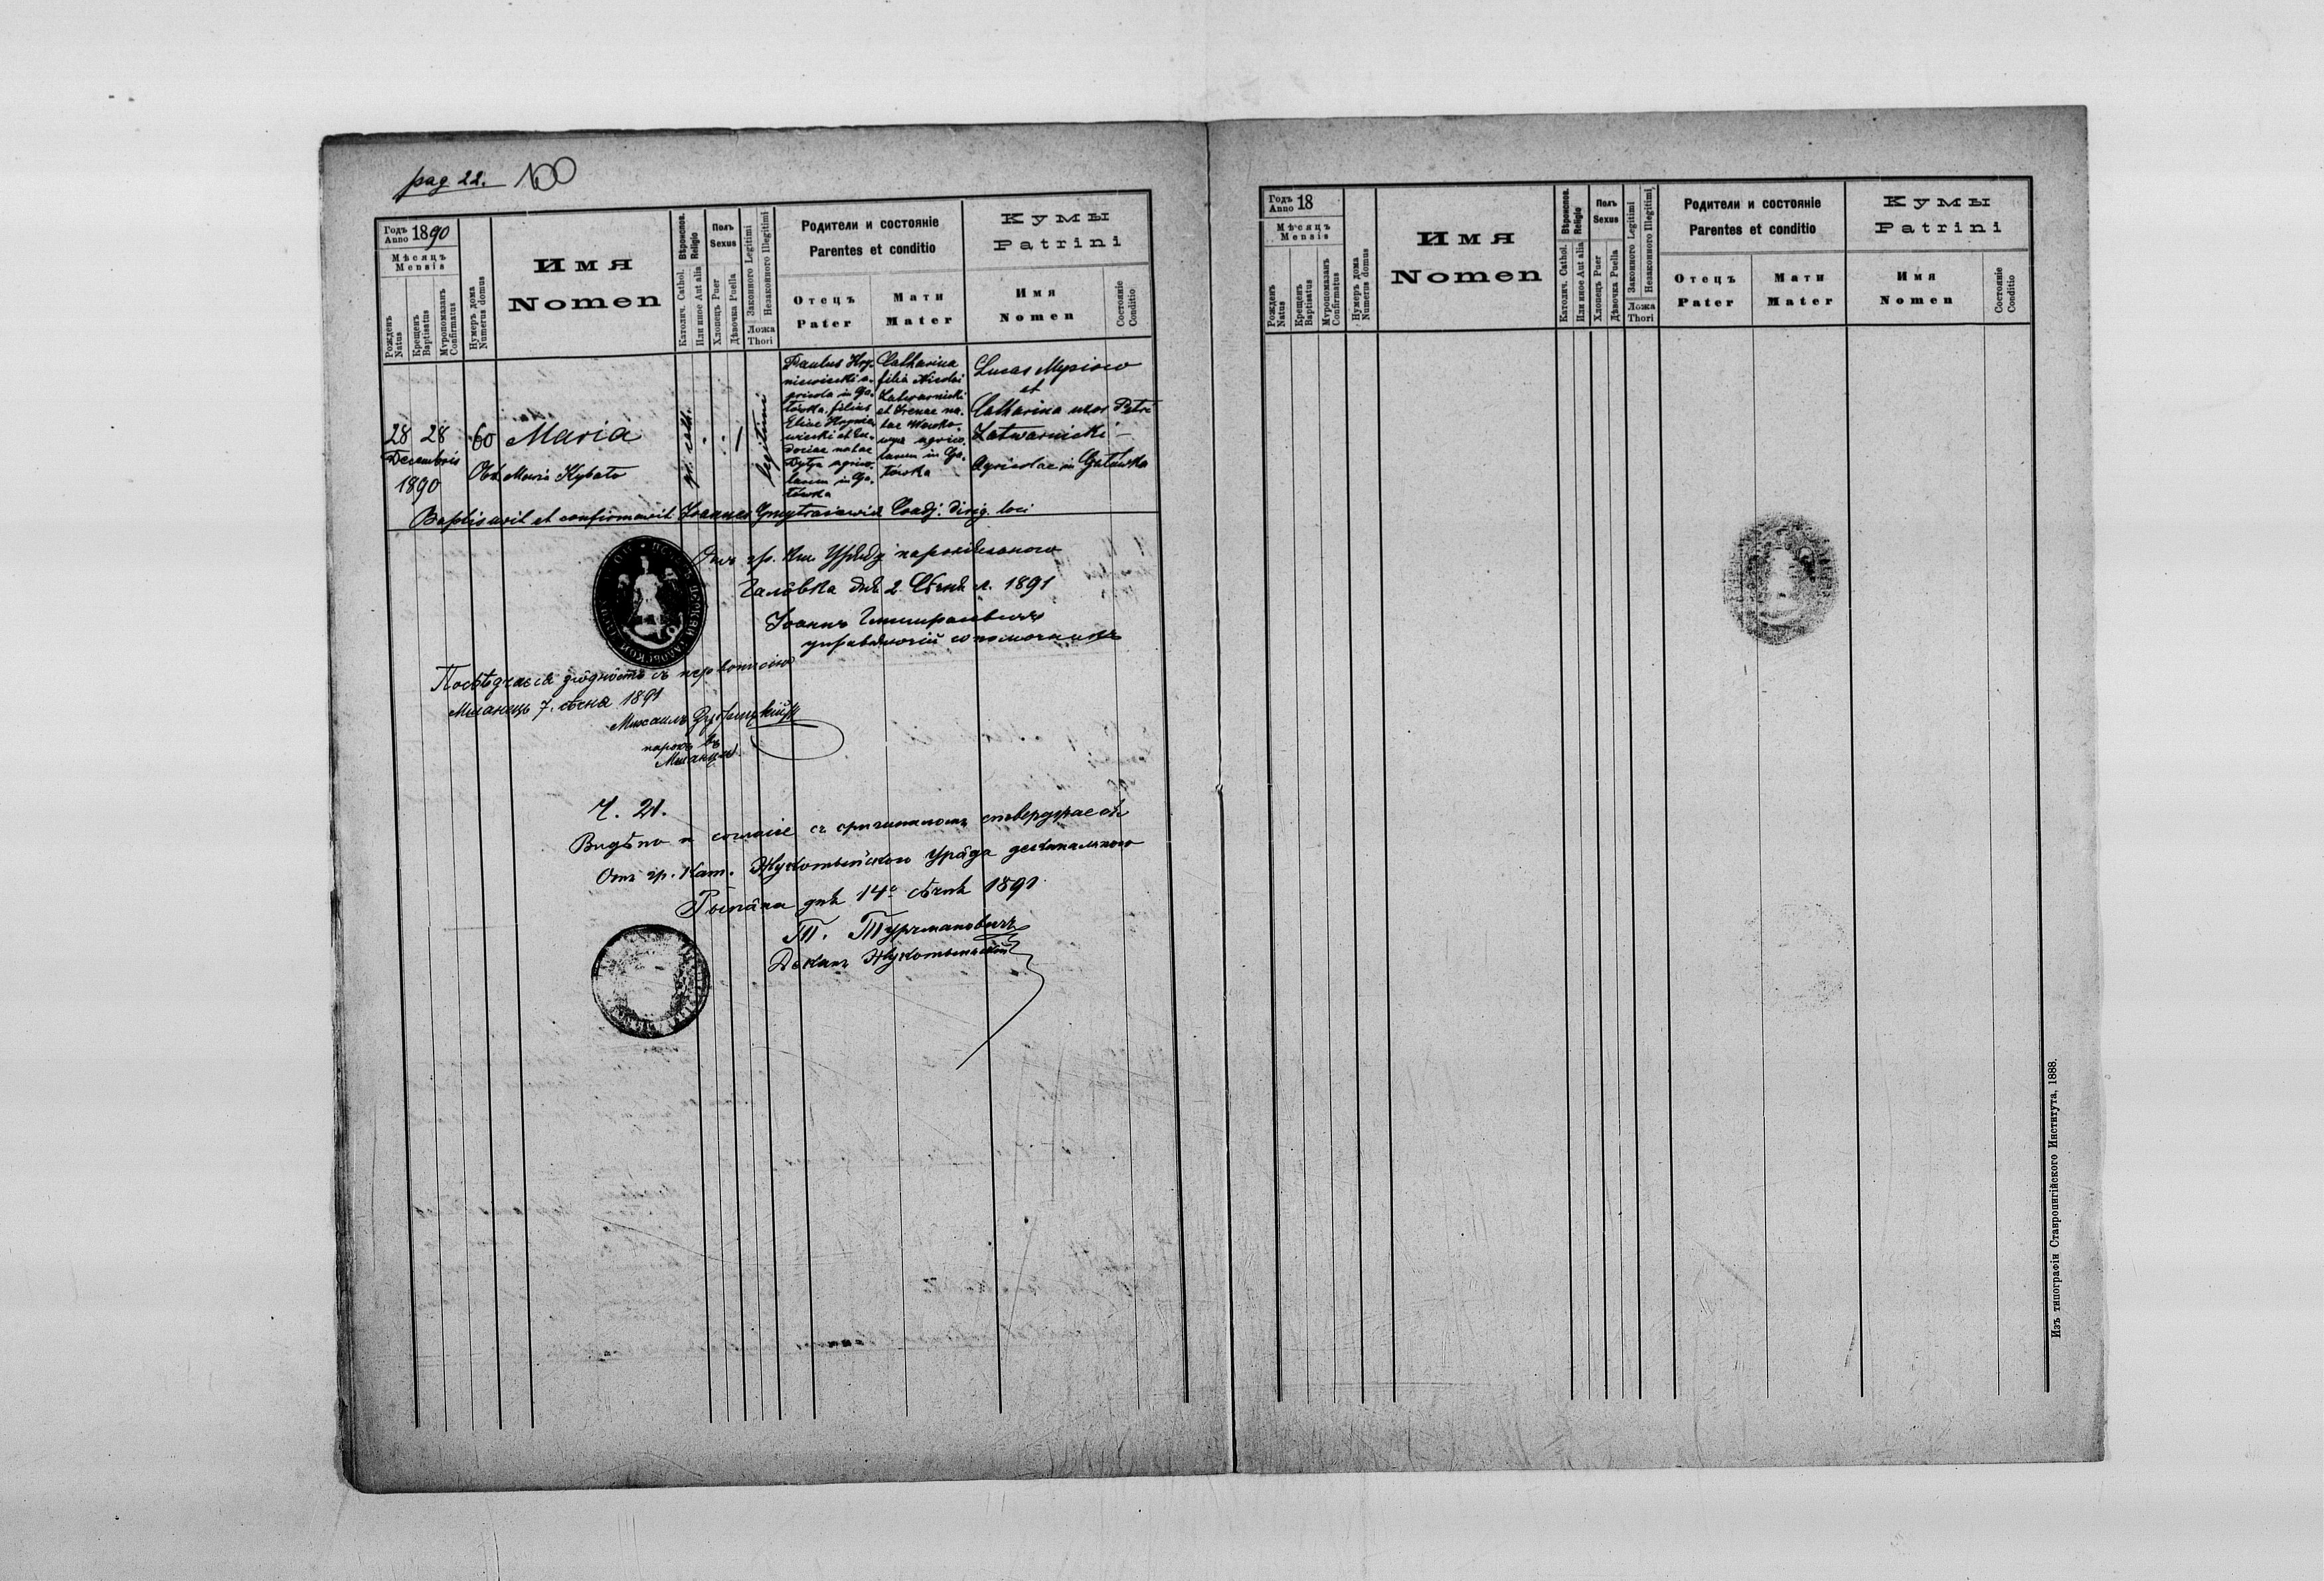 pag. 22. 100
Годъ
Anno 1890
Мѣсяцъ
Mensis
Рожденъ
Natus
Крещенъ
Baptisatus
Мѵропомазанъ
Confirmatus
Нумеръ дома
Numerus domus
Имя
Nomen
Вѣроиспов.
Religio
Католич. Cathol.
Или иное Aut alia
Полъ
Sexus
Хлопецъ Puer
Дѣвочка Puella
Законного Legitimi
Незаконного Illegitimi
Ложа
Thori
Родители и состояніе
Parentes et conditio
Отецъ
Pater
Мати
Mater
Кумы
Patrini
Имя
Nomen
Состояніе
Conditio
28 28
Decembris
1890
60
Maria
Obst. Maria Kybato
gr. cath.
legitimi
Paulus
agricola in Ga-
łówka, filius
Eliae
et Eu-
dociae natae
agrico-
larum in Ga-
łówka
Catharina
filia Nicolai
Zatwarnicki
et Irenae na-
tae
agrico-
larum in Ga-
łówka
Lucas
et
Catharina uxor Petri
Zatwarnicki –
Agricolae in Gałówka
Baptisavit et confirmavit Joannes Coadj. dirig. loci
Отъ гр. кат. Уряду парохіяльного
Галôвка днѣ 2 Сѣчня 1891
Іоаннъ
управляючій сопомощникъ
Посвѣдчаеся згôдность съ первописію
Мшанець 7. сѣчня 1891
Михаилъ Зубрицкій
парохъ въ
Мшанци
Ч. 21.
Видѣно и согласіе съ оригиналомъ ствердждаеся
Отъ гр. кат. Жукотынского Уряда деканального
днѣ 14 сѣчня 1891
Т. Турчмановичъ
Деканъ Жукотынскій
Годъ
Anno 18
Мѣсяцъ
Mensis
Рожденъ
Natus
Крещенъ
Baptisatus
Мѵропомазанъ
Confirmatus
Нумеръ дома
Numerus domus
Имя
Nomen
Вѣроиспов.
Religio
Католич. Cathol.
Или иное Aut alia
Полъ
Sexus
Хлопецъ Puer
Дѣвочка Puella
Законного Legitimi
Незаконного Illegitimi
Ложа
Thori
Родители и состояніе
Parentes et conditio
Отецъ
Pater
Мати
Mater
Кумы
Patrini
Имя
Nomen
Состояніе
Conditio
Изъ типографіи Ставропигійского Института, 1888.